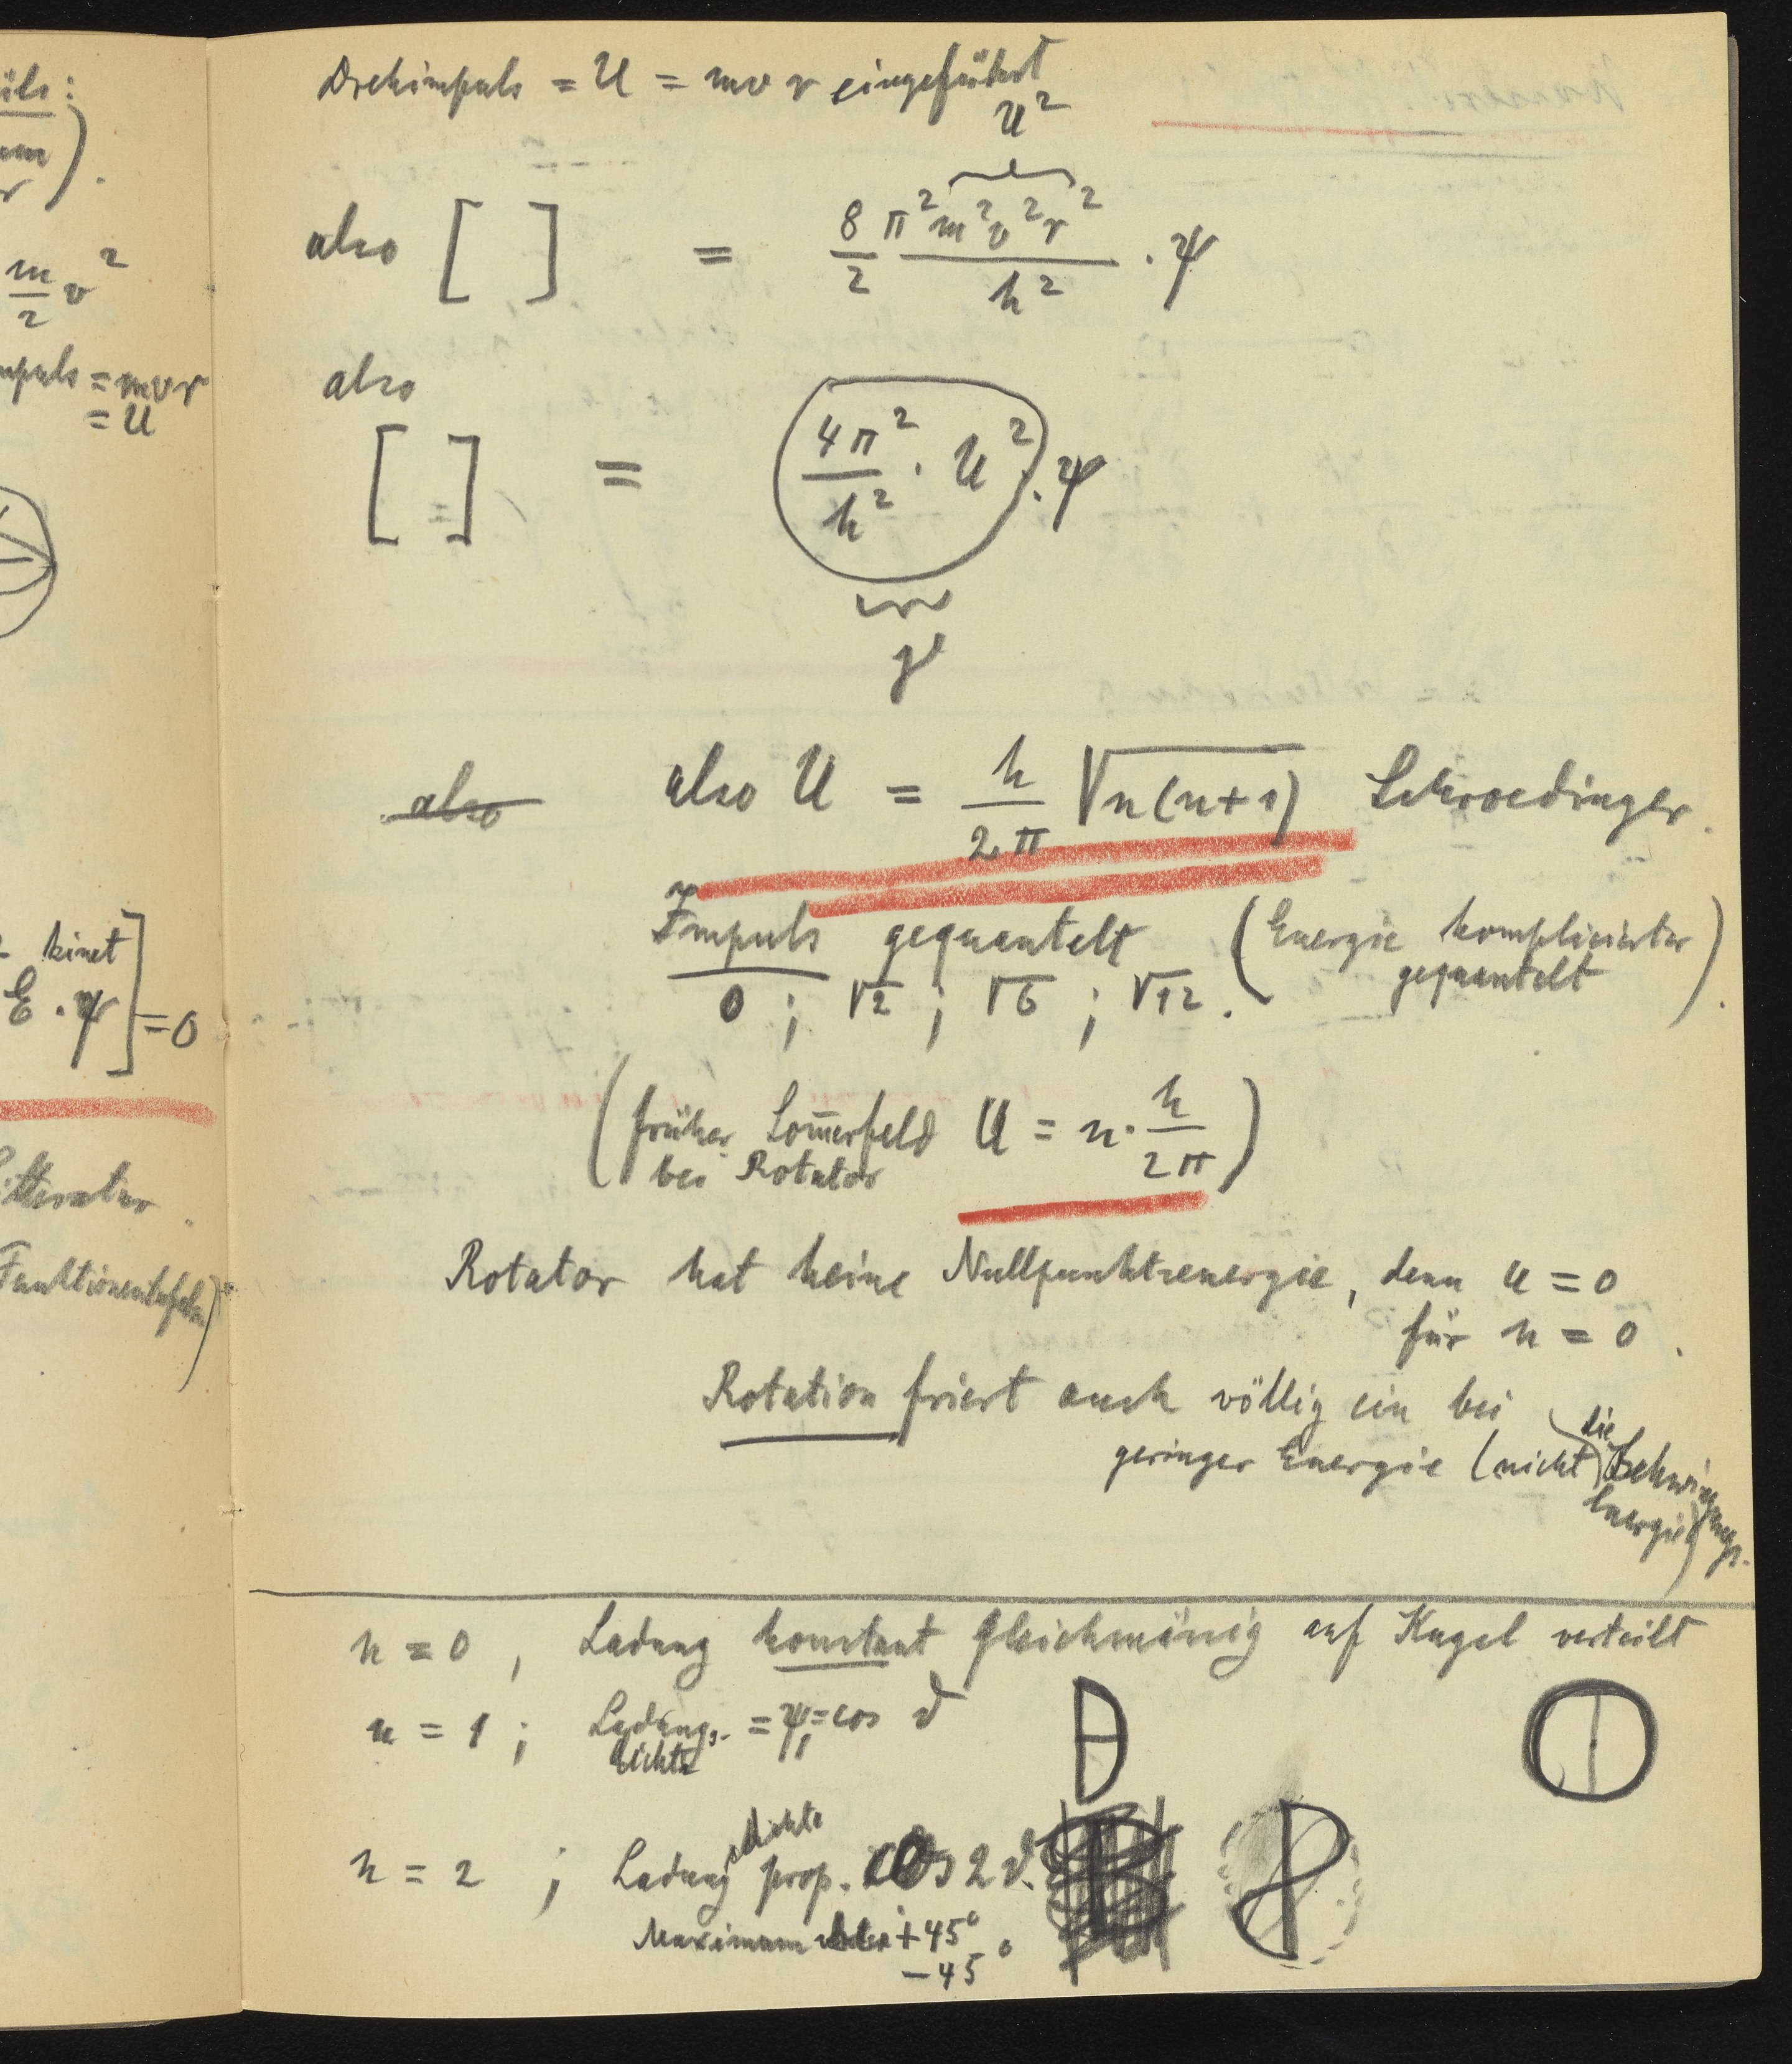 üls:
m
r).
m/2 v²
mpuls = mvr
= U
kinet
E · ψ] = 0
Litteratur.
Funktionentafeln)
Drehimpuls = U = mv r eingeführt
U²
also [ ] = 8/2 π² m² v² r² / h² · ψ
also
[ ] = (4π²/h² · U²) · ψ
γ
also also U = h/2π √n(n+1) Schroedinger.
Impuls gequantelt (Energie komplizierter
gequantelt).
0 ; √2 ; √6 ; √12 .
(früher Som̅erfeld U = n · h/2π)
bei Rotator
Rotator hat keine Nullpunktsenergie, denn U = 0
für n = 0 .
Rotation friert auch völlig ein bei
geringer Energie (nicht die Schwingungs-
energie)
n = 0 , Ladung konstant gleichmässig auf Kugel verteilt
n = 1 ; Ladungs- = ψ₁ = cos ϑ
dichte
n = 2 ; Ladungsdichte prop. cos 2 ϑ.
Maximum bei + 45°
− 45°